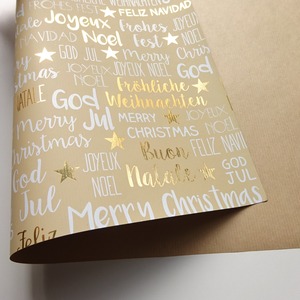 FROHES FEST
WEIHNACHTEN
FELIZ NAVIDAD
Joyeux
Frohes
JOYEUX
NOËL
NAVIDAD
Noel
Fest
GOD
JUL
Merry
JOYEUX
NOEL
God
Jul
Christmas
Fröhliche
Weihnachten
JOYEUX
NOEL
NATALE
God
Jul
MERRY
CHRISTMAS
FELIZ
NAVIDAD
Merry
Christmas
JOYEUX
NOEL
Buon
Natale
GOD
JUL
God
Jul
Merry Christmas
Feliz